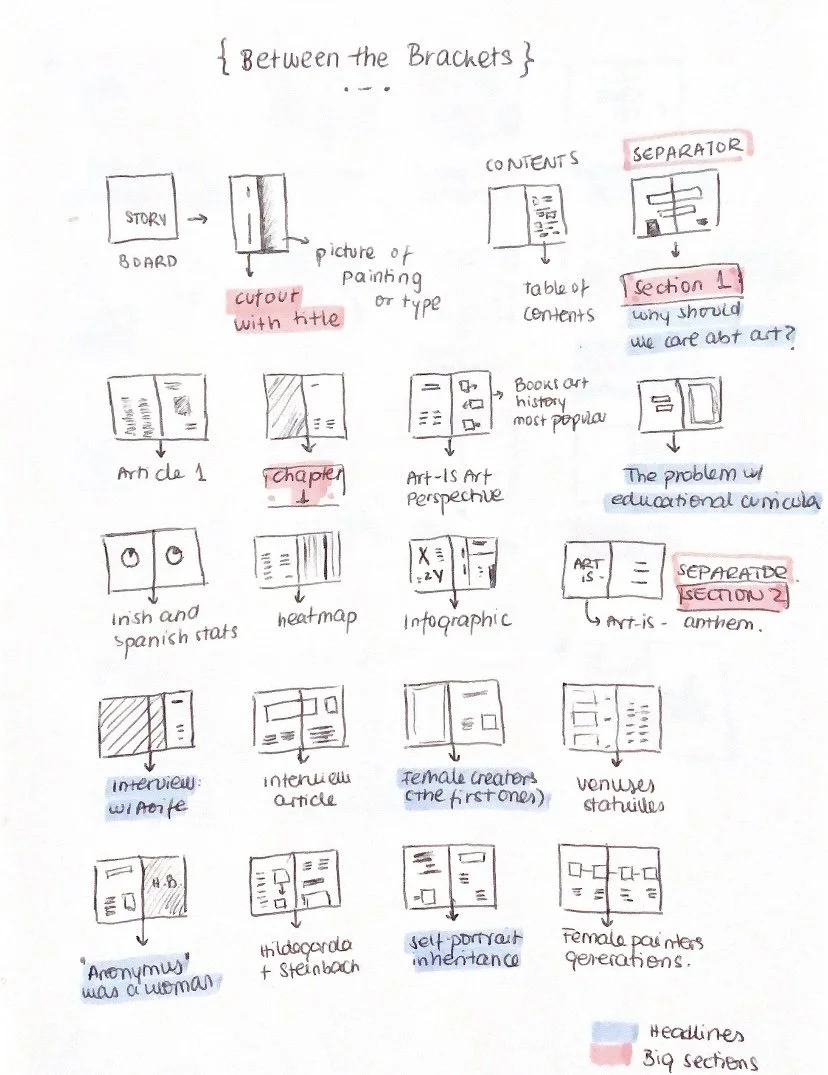 { Between the Brackets }
STORY
BOARD
cutout
with title
picture of
painting
or type
CONTENTS
table of
contents
SEPARATOR
Section 1
why should
we care abt art?
Article 1
chapter
1
Art-Is Art
Perspective
Books art
history
most popular
The problem w/
educational curricula
Irish and
Spanish stats
heatmap
X
=2Y
Infographic
ART
IS -
Art-is - anthem.
SEPARATOR.
SECTION 2
Interview:
w/Aoife
interview
article
Female creators
(the first ones)
venuses
statuilles
H.B.
"Anonymus"
was a woman
Hildegarda
+ Steinbach
self-portrait
inheritance
Female painters
generations.
Headlines
Big sections